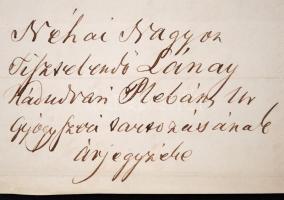 Néhai Nagyon
Tisztelendő Lánay
Nádudvari Plebán Ur
Gyógyszeri tartozásának
árjegyzéke